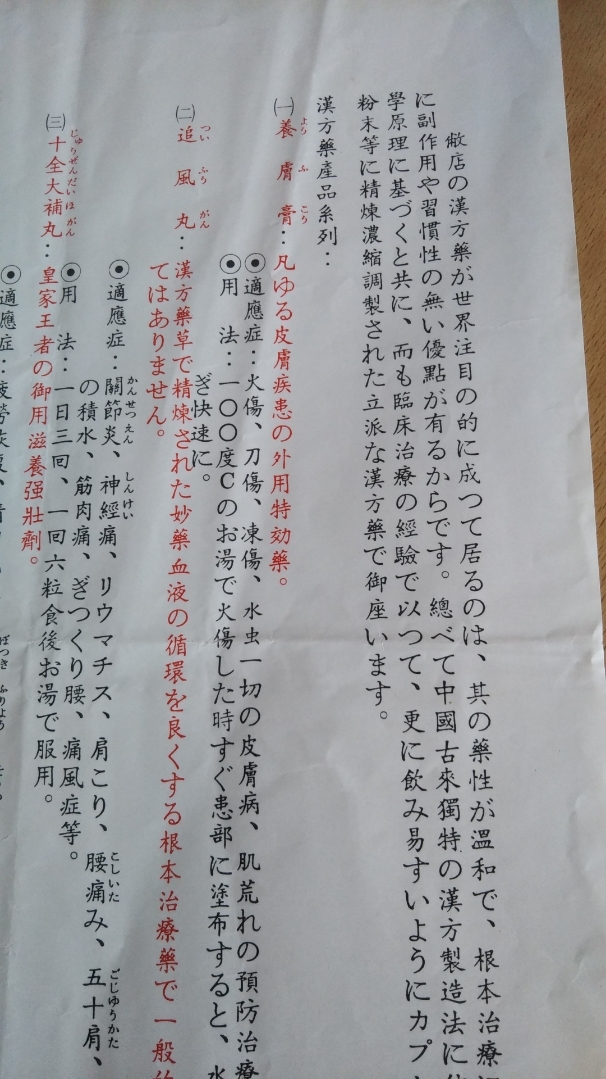 敝店の漢方藥が世界注目の的に成つて居るのは、其の藥性が溫和で、根本治療
に副作用や習慣性の無い優點が有るからです。總べて中國古來獨特の漢方製造法に
學原理に基づくと共に、而も臨床治療の經驗で以つて、更に飲み易すいようにカプ
粉末等に精煉濃縮調製された立派な漢方藥で御座います。
漢方藥產品系列：
㈠養膚膏：凡ゆる皮膚疾患の外用特効藥。
より ふ こう
◉適應症：火傷、刀傷、凍傷、水虫一切の皮膚病、肌荒れの預防治療
◉用　法：一〇〇度Cのお湯で火傷した時すぐ患部に塗布すると、水
ぎ快速に。
㈡追風丸：漢方藥草で精煉された妙藥血液の循環を良くする根本治療藥で一般的
つい ふう がん
てはありません。
◉適應症：關節炎、神經痛、リウマチス、肩こり、腰痛み、五十肩、
かんせつえん しんけい こしいた ごじゆうかた
の積水、筋肉痛、ぎつくり腰、痛風症等。
◉用　法：一日三回、一回六粒食後お湯で服用。
㈢十全大補丸：皇家王者の御用滋養强壯劑。
じゆうぜんだいほがん
◉適應症：疲勞恢復、
ぼつき ふりよう